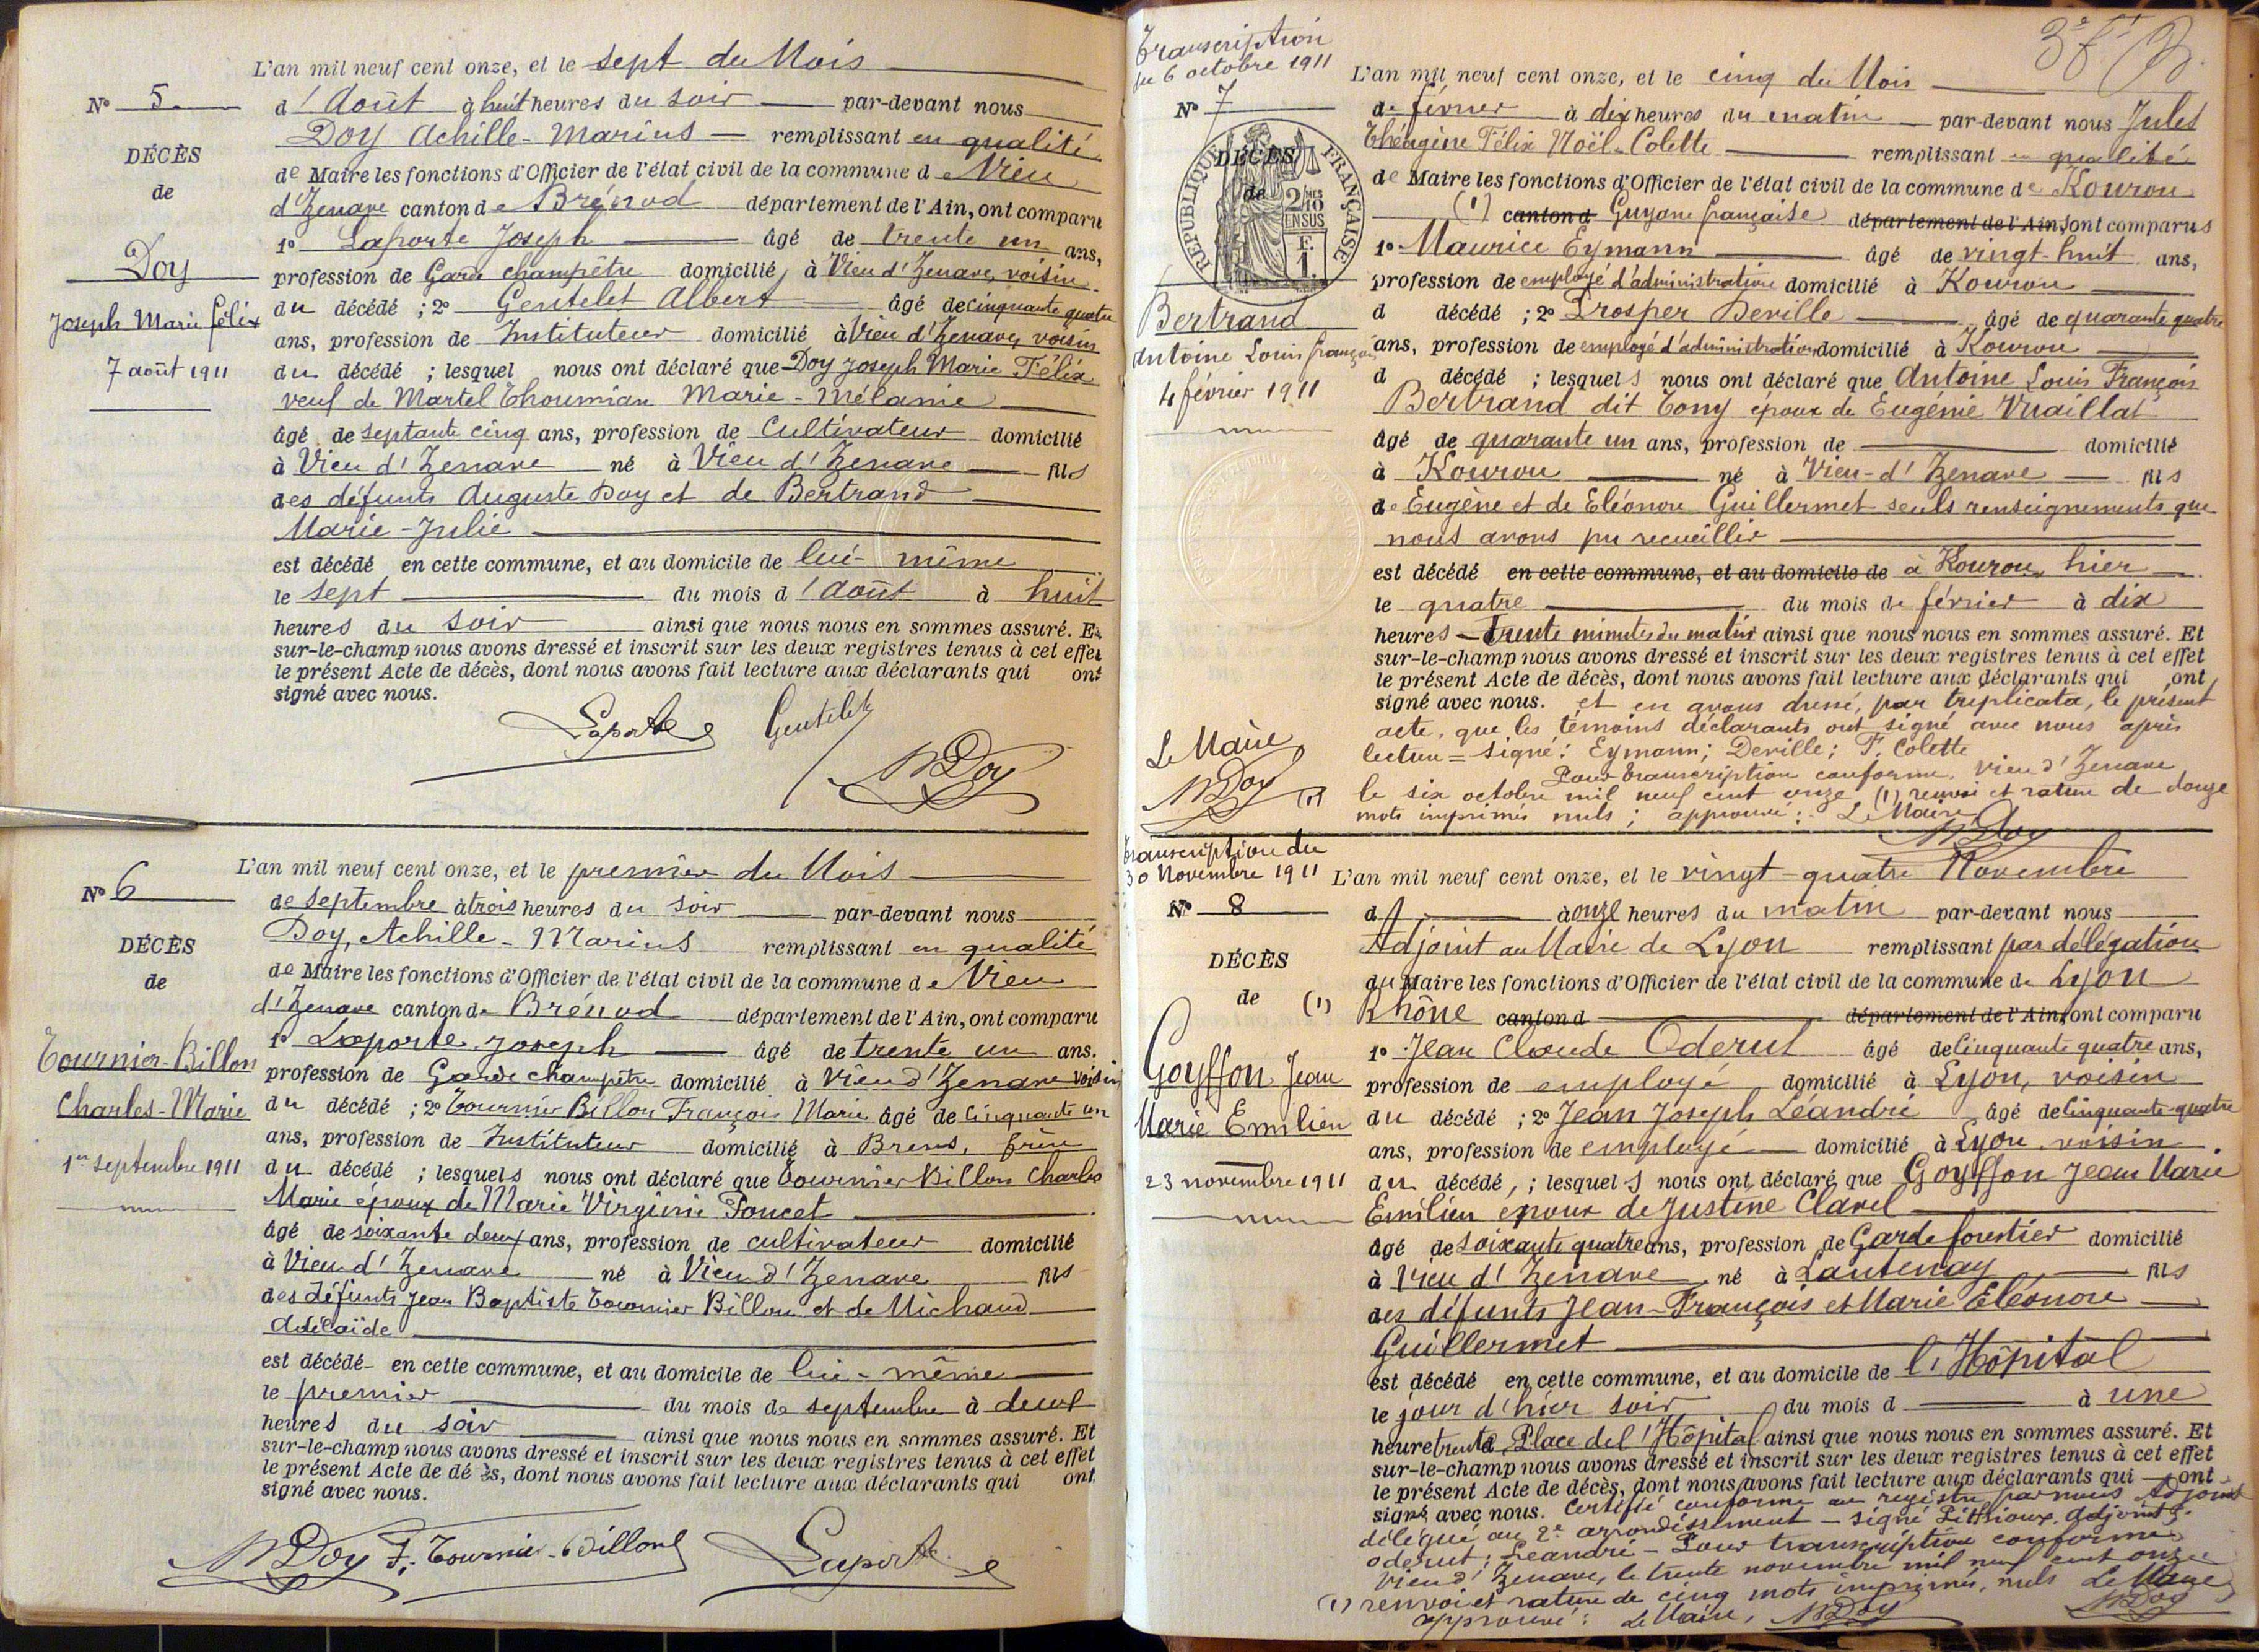 L'an mil neuf cent onze, et le sept du Mois
N° 5
d'Août à huit heures du soir par-devant nous
Doy Achille-Marius remplissant en qualité
DÉCÈS
de Maire les fonctions d'Officier de l'état civil de la commune de Vieu
de
d'Izenave canton de Brénod département de l'Ain, ont comparu
1° Laporte Joseph âgé de trente un ans,
Doy
profession de Garde champêtre domicilié à Vieu d'Izenave, voisin
Joseph Marie Félix
du décédé ; 2° Gentelet Albert âgé de cinquante quatre
ans, profession de Instituteur domicilié à Vieu d'Izenave, voisin
7 août 1911
du décédé ; lesquel nous ont déclaré que Doy Joseph Marie Félix
veuf de Martel Thoumian Marie-Mélanie
âgé de septante cinq ans, profession de Cultivateur domicilié
à Vieu d'Izenave né à Vieu d'Izenave fils
des défunts Auguste Doy et de Bertrand
Marie-Julie
est décédé en cette commune, et au domicile de lui-même
le sept du mois d'Août à huit
heures du soir ainsi que nous nous en sommes assuré. Et
sur-le-champ nous avons dressé et inscrit sur les deux registres tenus à cet effet
le présent Acte de décès, dont nous avons fait lecture aux déclarants qui ont
signé avec nous.
Laporte Gentelet
MDoy
L'an mil neuf cent onze, et le premier du Mois
N° 6
de septembre à trois heures du soir par-devant nous
Doy, Achille-Marius remplissant en qualité
DÉCÈS
de Maire les fonctions d'Officier de l'état civil de la commune de Vieu
de
d'Izenave canton de Brénod département de l'Ain, ont comparu
1° Laporte Joseph âgé de trente un ans.
Tournier-Billon
profession de Garde champêtre domicilié à Vieu d'Izenave voisin
Charles-Marie
du décédé ; 2° Tournier Billon François Marie âgé de cinquante un
ans, profession de Instituteur domicilié à Brens, frère
1er septembre 1911
du décédé ; lesquels nous ont déclaré que Tournier Billon Charles
Marie époux de Marie Virginie Poncet
âgé de soixante deux ans, profession de cultivateur domicilié
à Vieu d'Izenave né à Vieu d'Izenave fils
des défunts Jean Baptiste Tournier Billon et de Michaud
Adélaïde
est décédé en cette commune, et au domicile de lui-même
le premier du mois de septembre à deux
heures du soir ainsi que nous nous en sommes assuré. Et
sur-le-champ nous avons dressé et inscrit sur les deux registres tenus à cet effet
le présent Acte de décès, dont nous avons fait lecture aux déclarants qui ont
signé avec nous.
MDoy F. Tournier-Billon Laporte
Transcription
du 6 octobre 1911
L'an mil neuf cent onze, et le cinq du Mois
N° 7
de février à dix heures du matin par-devant nous Jules
Théogène Félix Noël-Colette remplissant en qualité
DÉCÈS
de
RÉPUBLIQUE FRANÇAISE
2/10 EN SUS
F. 1.
de Maire les fonctions d'Officier de l'état civil de la commune de Kourou
(1) canton d Guyane française département de l'Ain, ont comparus
1° Maurice Eymann âgé de vingt-huit ans,
profession de employé d'administration domicilié à Kourou
Bertrand
d décédé ; 2° Prosper Deville âgé de quarante quatre
Antoine Louis François
ans, profession de employé d'administration domicilié à Kourou
4 février 1911
d décédé ; lesquels nous ont déclaré que Antoine Louis François
Bertrand dit Tony époux de Eugénie Vuaillat
âgé de quarante un ans, profession de domicilié
à Kourou né à Vieu-d'Izenave fils
de Eugène et de Eléonore Guillermet seuls renseignements que
nous avons pu recueillir
est décédé en cette commune, et au domicile de à Kourou, hier
le quatre du mois de février à dix
heures trente minutes du matin ainsi que nous nous en sommes assuré. Et
sur-le-champ nous avons dressé et inscrit sur les deux registres tenus à cet effet
le présent Acte de décès, dont nous avons fait lecture aux déclarants qui ont
signé avec nous. et en avons dressé, par triplicata, le présent
acte, que les témoins déclarants ont signé avec nous après
lecture = signé : Eymann ; Deville ; F. Colette
Le Maire
Pour transcription conforme. Vieu d'Izenave
MDoy
le six octobre mil neuf cent onze (1) renvoi et rature de douze
mots imprimés nuls ; approuvé : Le Maire
MDoy
Transcription du
30 Novembre 1911
L'an mil neuf cent onze, et le vingt-quatre Novembre
N° 8
d à onze heures du matin par-devant nous
Adjoint au Maire de Lyon remplissant par délégation
DÉCÈS
du Maire les fonctions d'Officier de l'état civil de la commune de Lyon
de
(1) Rhône canton d département de l'Ain, ont comparu
1° Jean Claude Oderut âgé de cinquante quatre ans,
Goyffon Jean
profession de employé domicilié à Lyon, voisin
Marie Emilien
du décédé ; 2° Jean Joseph Léandri âgé de cinquante-quatre
ans, profession de employé domicilié à Lyon voisin
23 novembre 1911
du décédé, ; lesquels nous ont déclaré que Goyffon Jean Marie
Emilien époux de Justine Clavel
âgé de soixante quatre ans, profession de Garde forestier domicilié
à Vieu d'Izenave né à Lantenay fils
des défunts Jean-François et Marie Eléonore
Guillermet
est décédé en cette commune, et au domicile de l'Hôpital
le jour d'hier soir du mois d à une
heure trente, Place de l'Hôpital ainsi que nous nous en sommes assuré. Et
sur-le-champ nous avons dressé et inscrit sur les deux registres tenus à cet effet
le présent Acte de décès, dont nous avons fait lecture aux déclarants qui ont
signé avec nous. Certifié conforme au registre par nous Adjoint
délégué au 2e arrondissement - signé Pitthioux, adjoint ;
Oderut ; Léandri - Pour transcription conforme
Vieu d'Izenave, le trente novembre mil neuf cent onze
(1) renvoi et rature de cinq mots imprimés, nuls Le Maire
approuvé : Le Maire, MDoy MDoy